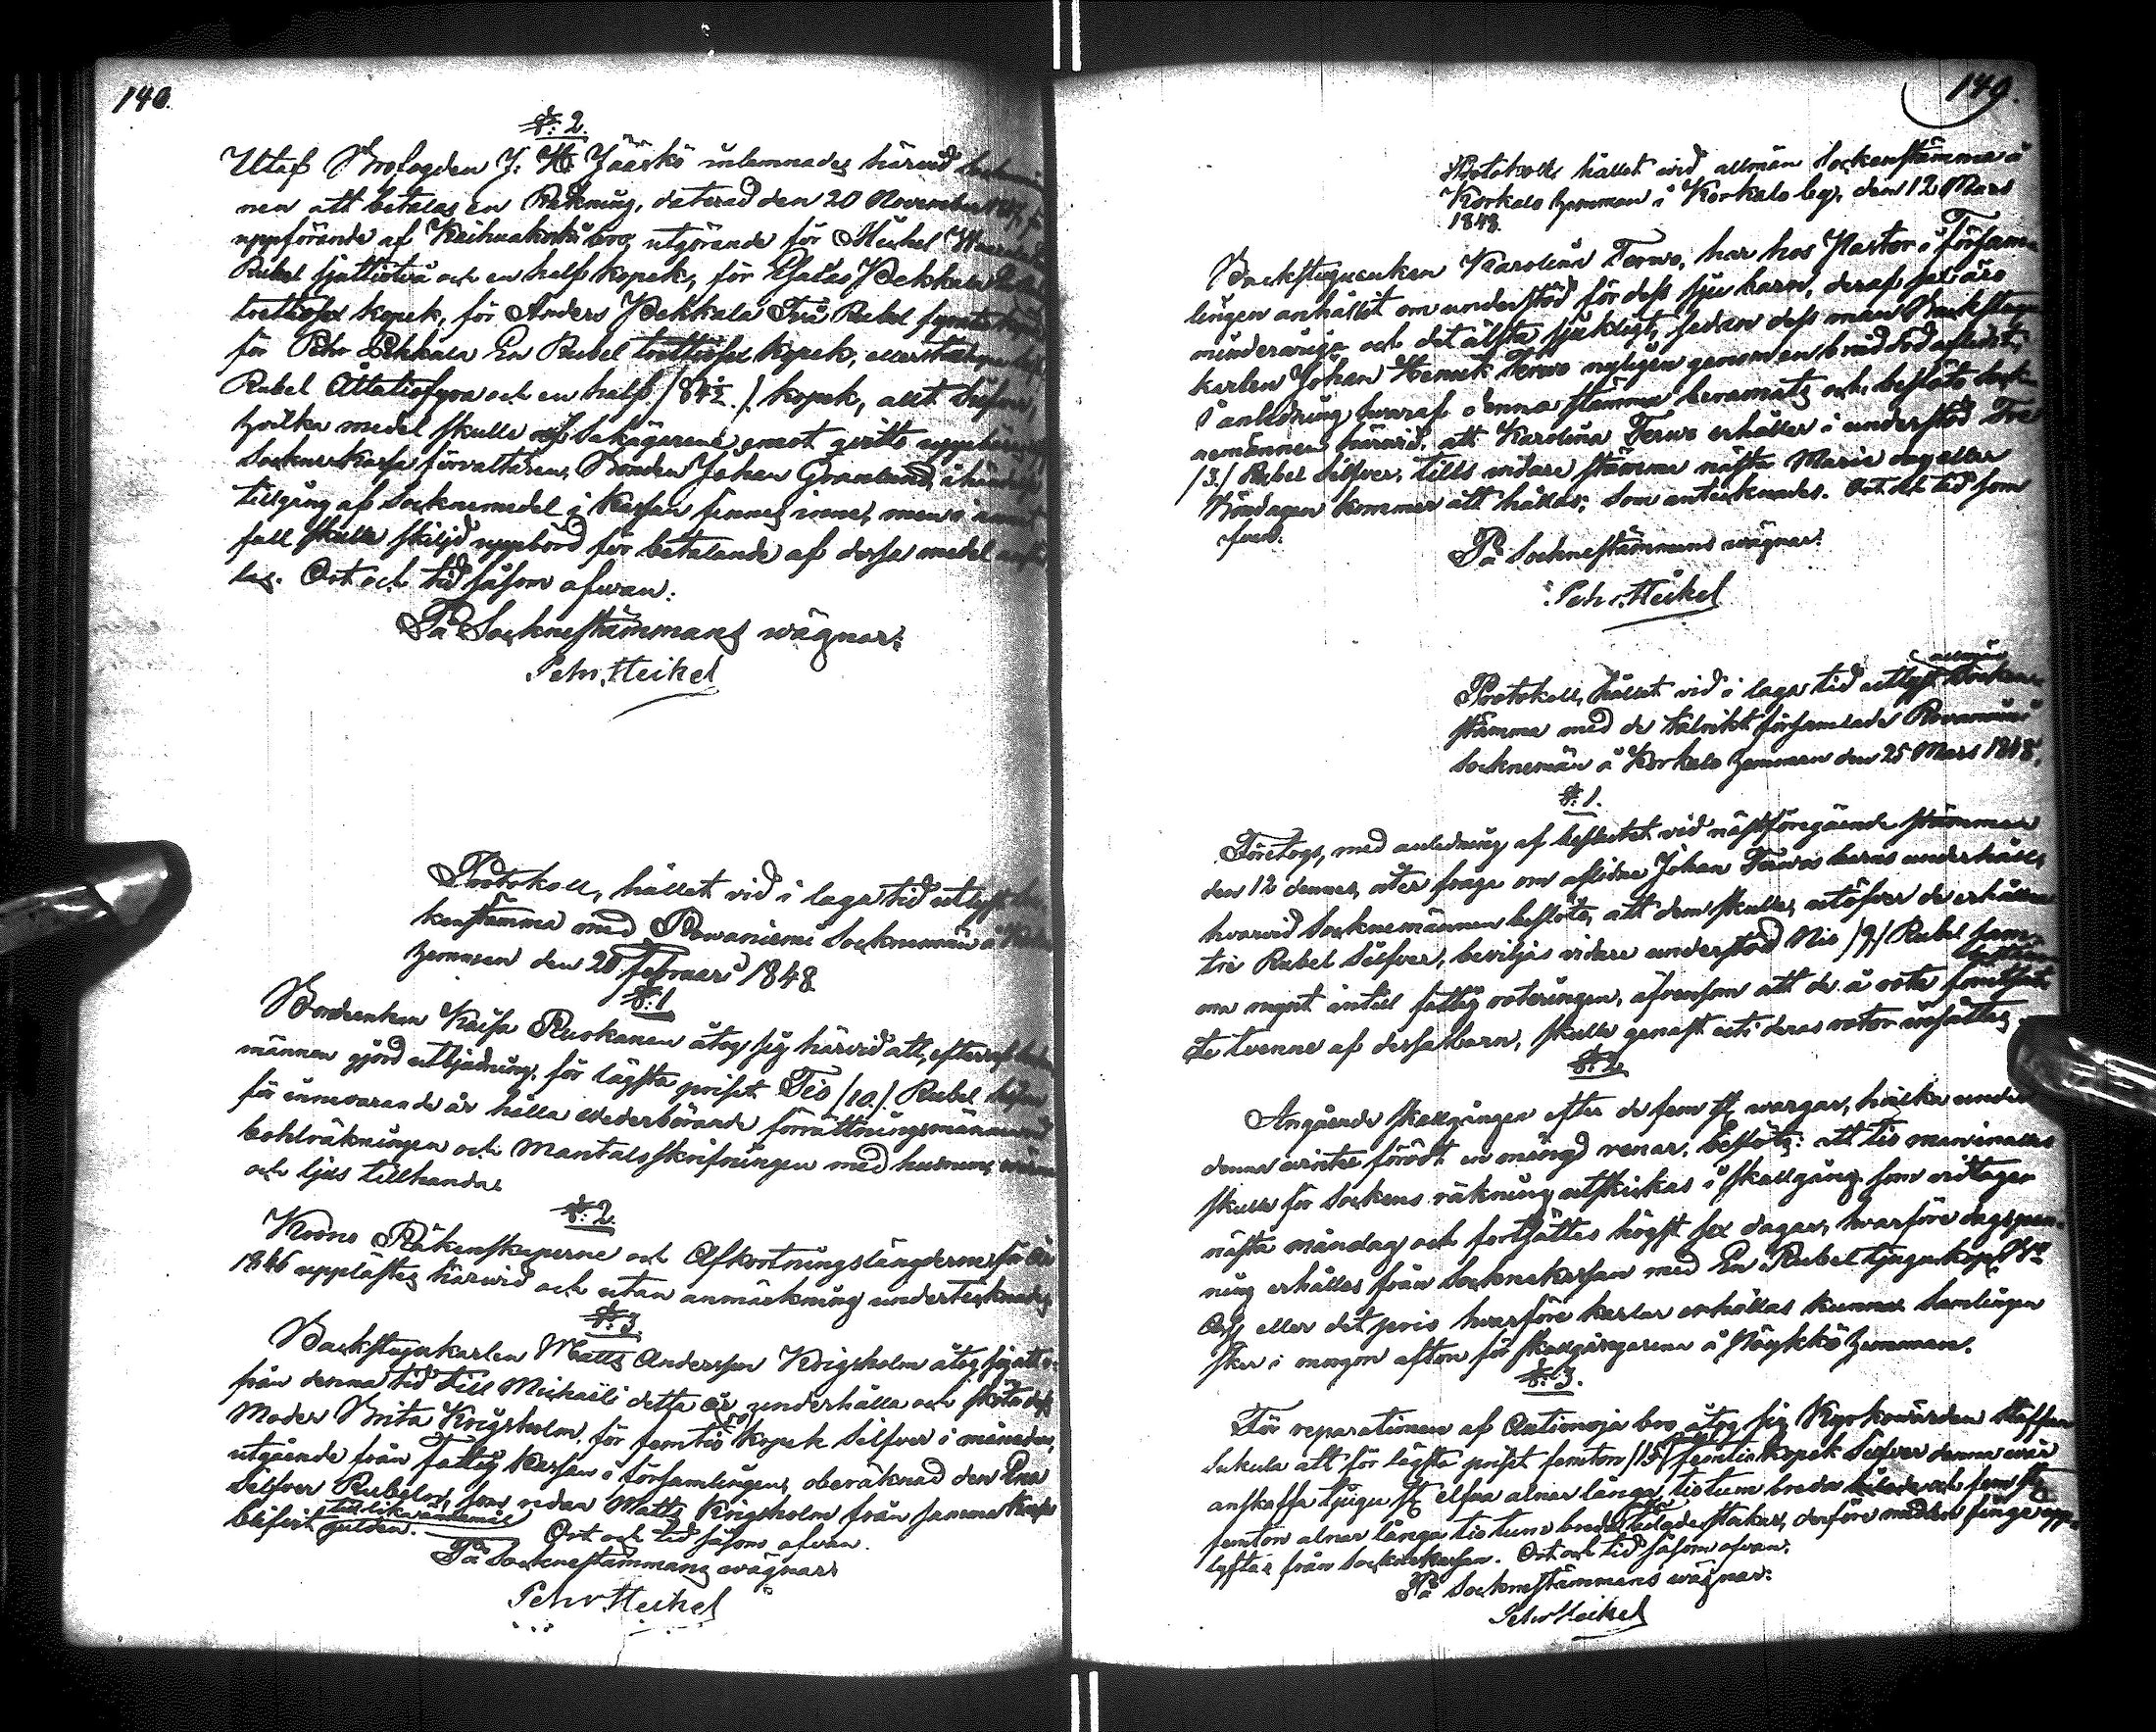 148.
§: 2.
Utaf Brofogden J. H. Jääskö inlemnades härvid
nen att betalas en Räkning, daterad den 20 November
uppförande af Kaihuakoski bro, utgörande för Michel
Rubel sjuttiotvå och en half kopek, för Esaias Pekkala
trettiosex kopek, för Anders Pekkala Två Rubel femtio kopek
för Pehr Pekkala En Rubel trettiosex kopek, eller
Rubel Åttatiofyra och en half /84½./ kopek, allt Silfver,
hvilka medel skulle af Sakägarene emot qvitto uppbäras
Sockne Kassa förvaltaren, Bonden Johan Granlund, i händelse
tillgång af Socknemedel i Kassan finnes inne, men i annat
fall skulle skiljd uppbörd för betalande af dessa medel
Ort och tid såsom ofvan.
På Socknestämmans wägnar:
Pehr Heikel
Protokoll, hållet vid i laga tid utlyst Soc-
kenstämma med Rovaniemi Socknemän å
hemman den 20 Februari 1848
§: 1
Bondenkan Kaisa Ruokanen åtog sig härvid att, efter af
männen gjord utbjudning, för lägsta priset Tio /10./ Rubel Silfver
för innevarande år hålla wederbörande förrättningsmän
bohlräkningen och Mantalsskrifningen med husrum, wärme
och ljus tillhanda.
§: 2.
Krono Räkenskaperne och Afkortningslängderne för år
1846 upplästes härwid och utan anmärkning undertecknades
§: 3.
Backstugukarlen Matts Andersson Krigsholm åtog sig att
från denna tid till Michaëli detta år underhålla och sköta dess
Moder Brita Krigsholm, för femtio (50) kopek Silfver i månaden,
utgående från Fattig Kassan i församlingen, oberäknad den Ena
Silfver Rubeln, som redan Matts Krigsholm från samma Kassa
blifvit till lika ändamål gulden. Ort och tid såsom ofvan.
På Socknestämmans wägnar:
Pehr Heikel
149.
Protokoll hållet wid allmän Sockenstämma å
Korkalo hemman i Korkalo by, den 12 Mars
1848.
Backstuguenkan Karolina Terwo, har hos Pastor i Försam-
lingen anhållit om understöd för dess sju barn, deraf sex äro
minderåriga och det älsta sjukligt, sedan dess man Backstugu-
karlen Johan Henrik Terwo nyligen genom en bråd död aflidit,
i anledning hwaraf denna stämma beramats och beslöts Sock-
nemännen härwid, att Karolina Terwo erhåller i understöd Tre
/3./ Rubel Silfver, tills widare stämma nästa Marie dag eller
Böndagen kommer att hållas; som antecknades. Ort och tid som
ofvan.
På Socknestämmans wägnar:
Pehr Heikel
Protokoll, hållet vid i laga tid utlyst allmän Socken-
stämma med de talrikt församlade Rovaniemi
Socknemän å Korkalo hemman den 25 Mars 1848.
§: 1.
Företogs, med anledning af beslutet vid nästföregående stämma
den 12 dennes, åter fråga om aflidne Johan Terwos barns underhåll,
hvarvid Socknemännen beslöto, att dem skulle, utöfver de erhållne
tre Rubel Silfver, beviljas vidare understöd Nio /9/ Rubel sam-
ma mynt intill fattig roteringen, äfvensom att de å rote
te tvenne af dessa barn, skulle genast uti deras rotor insättas.
§: 2.
Angående skallgången efter de fem st. wargar, hvilka under
denna winter förödt en mängd renar, beslöts: att tio man
skulle för Sockens räkning utskickas i skallgång som vidtager
nästa måndag och fortsättes högst sex dagar, hvarföre dagspen-
ning erhålles från Socknekassan med En Rubel tjugu kopek
eller det pris hvarföre karlar erhållas kunna. Samlingen
sker i morgon afton för skallgångarena å Pöykkö hemman.
§: 3.
För reparationen af Autionoja bro åtog sig Kyrkowärden Staffan
Sukula att för lägsta priset femton /15/ femtio kopek Silfver denna wår
anskaffa tjugu st. elfva alnar långa, tio tum breda bilade och fem st.
femton alnar långa tio tum breda bilade stockar, derföre medlen finge upp-
lyftas från Socknekassan. Ort och tid såsom ofvan.
På Socknestämmans wägnar:
Pehr Heikel